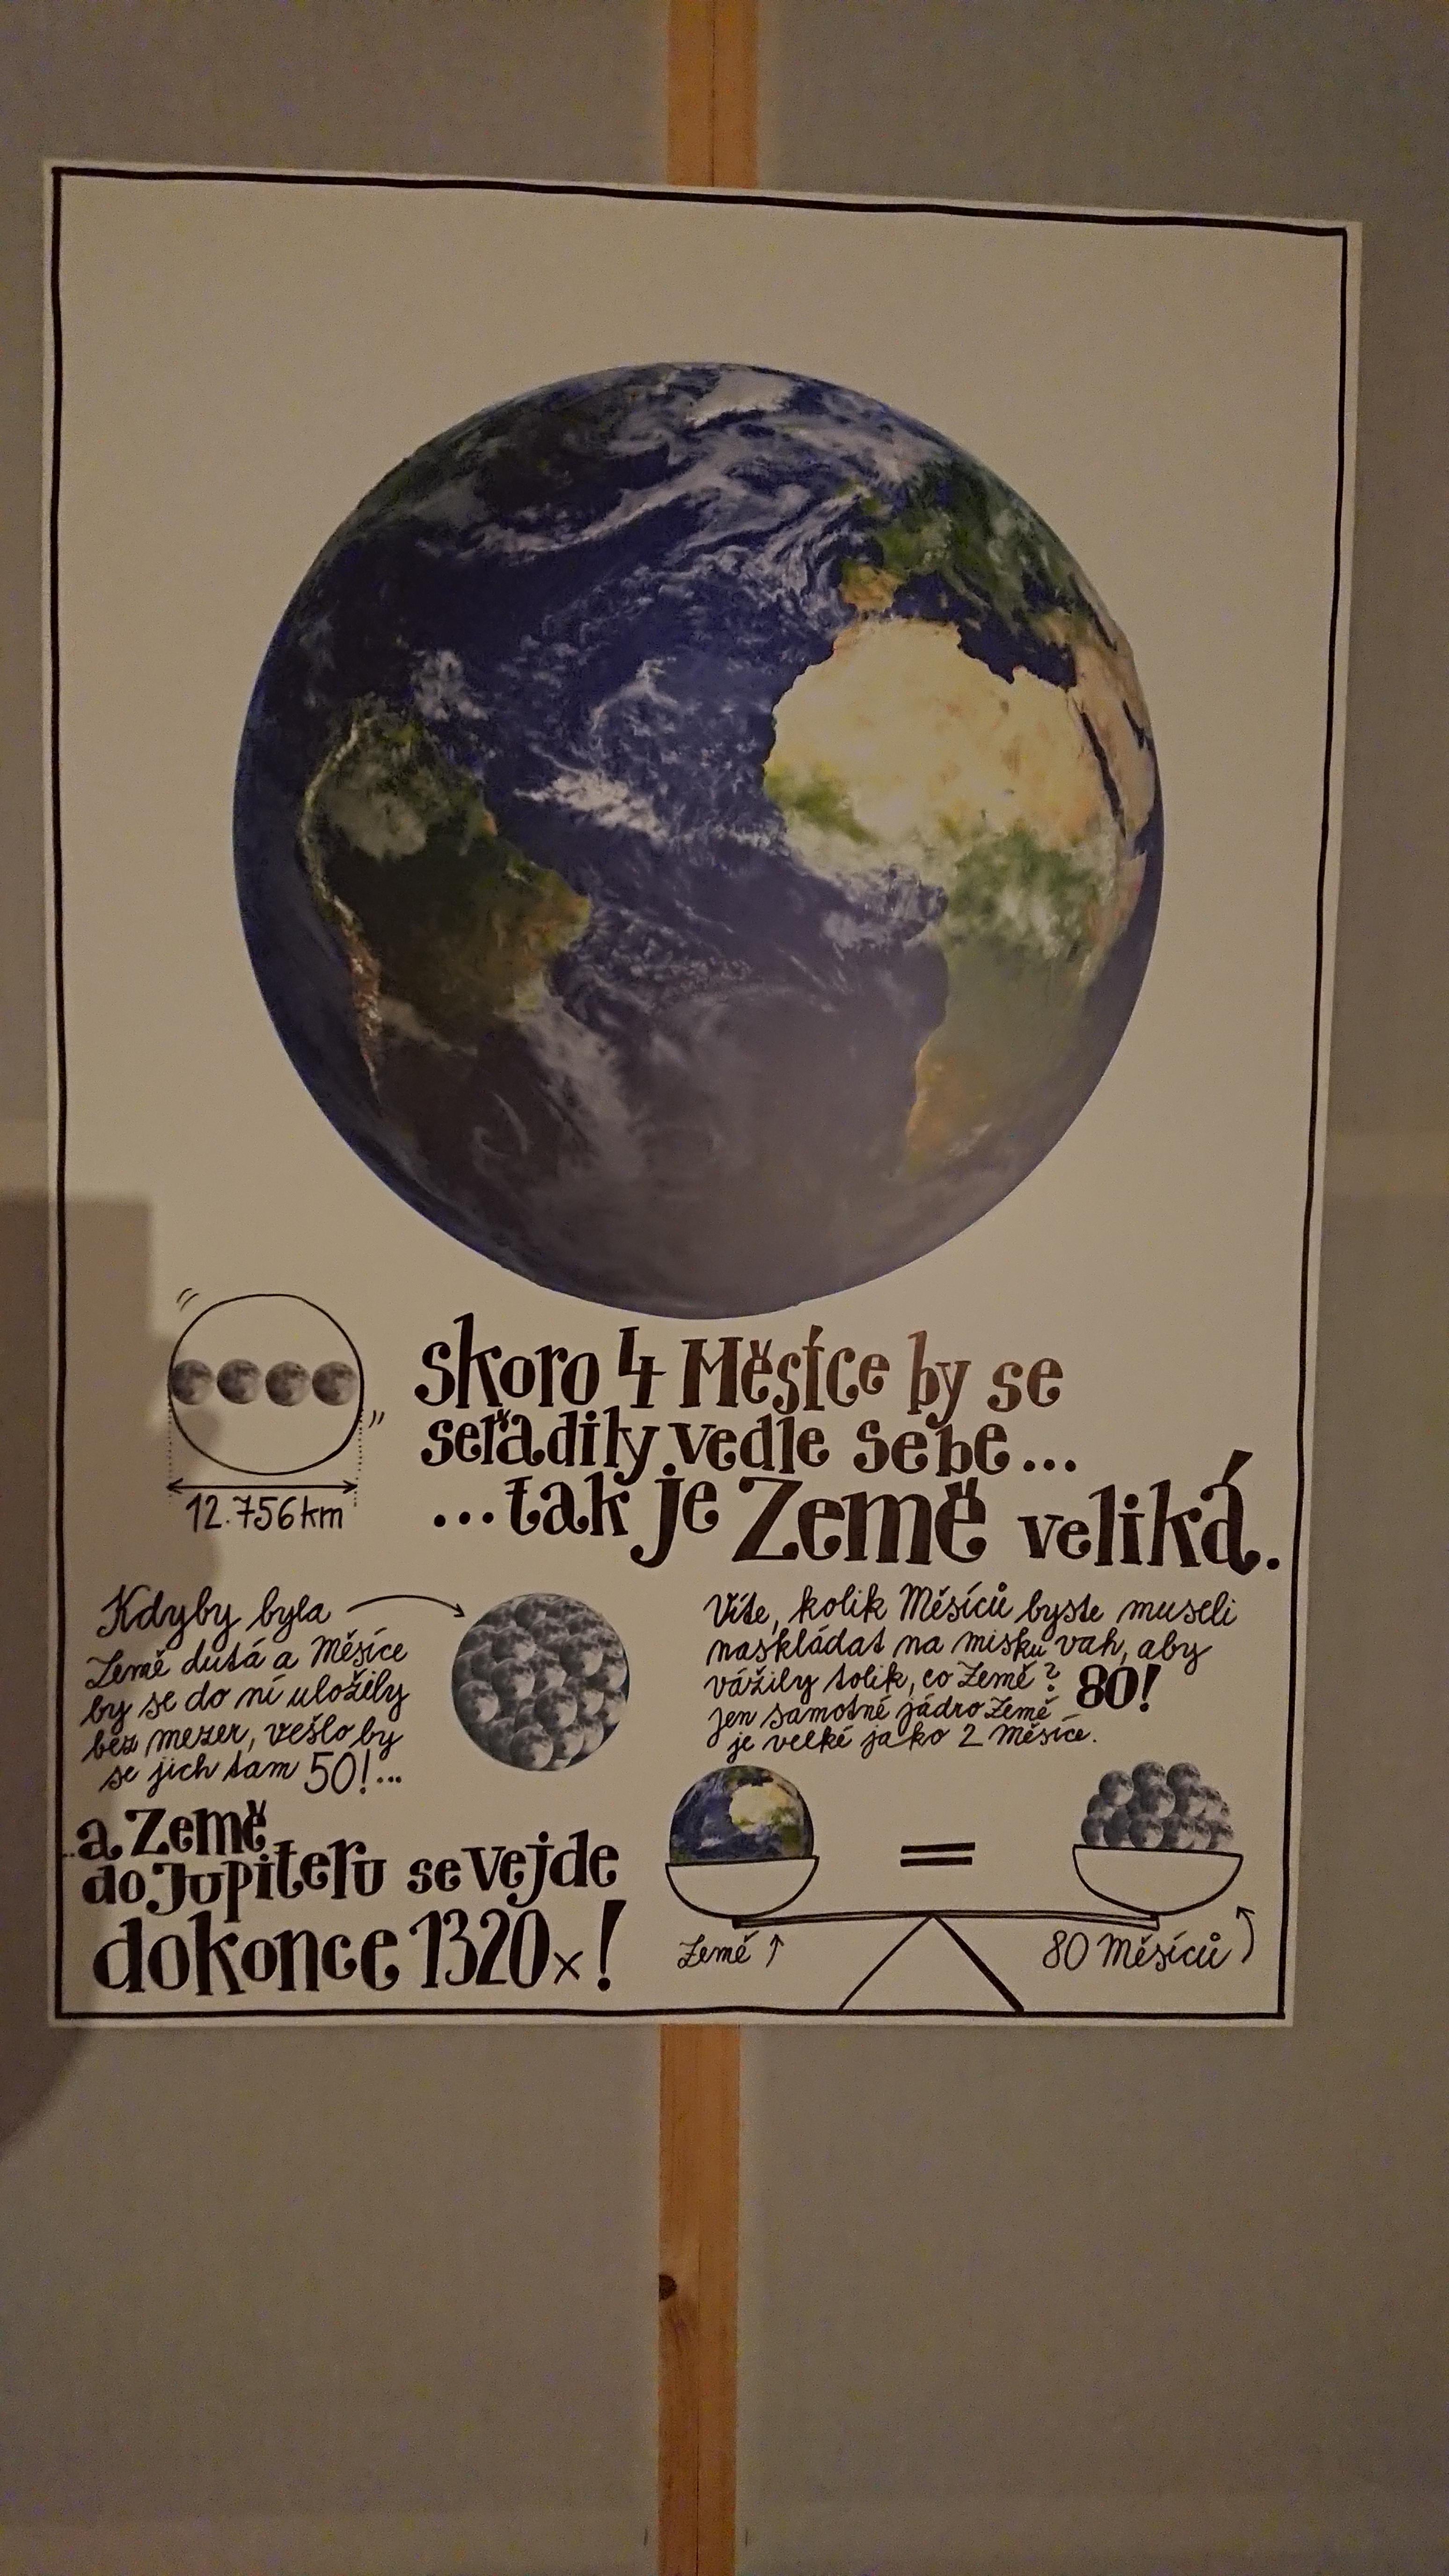 skoro 4 Měsíce by se
seřadily vedle sebe...
...tak je Země veliká.
12.756 km
Kdyby byla
Země dutá a Měsíce
by se do ní uložily
bez mezer, vešlo by
se jich tam 50!...
..a Země
do Jupiteru se vejde
dokonce 1320x!
Víte, kolik Měsíců byste museli
naskládat na misku vah, aby
vážily tolik, co Země? 80!
jen samotné jádro Země
je velké jako 2 měsíce.
=
Země
80 Měsíců